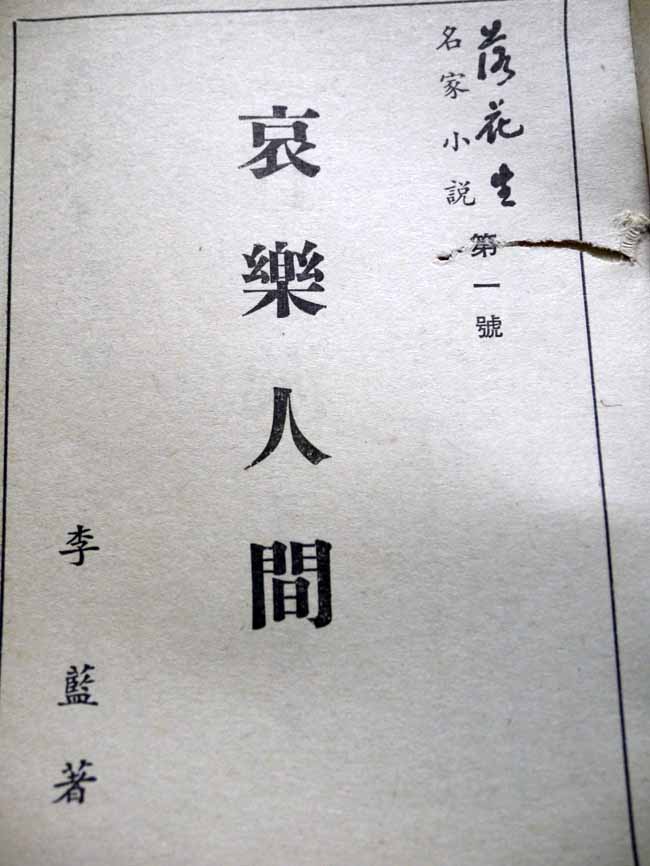 落花生
名家小説
第一號
哀樂人間
李藍著